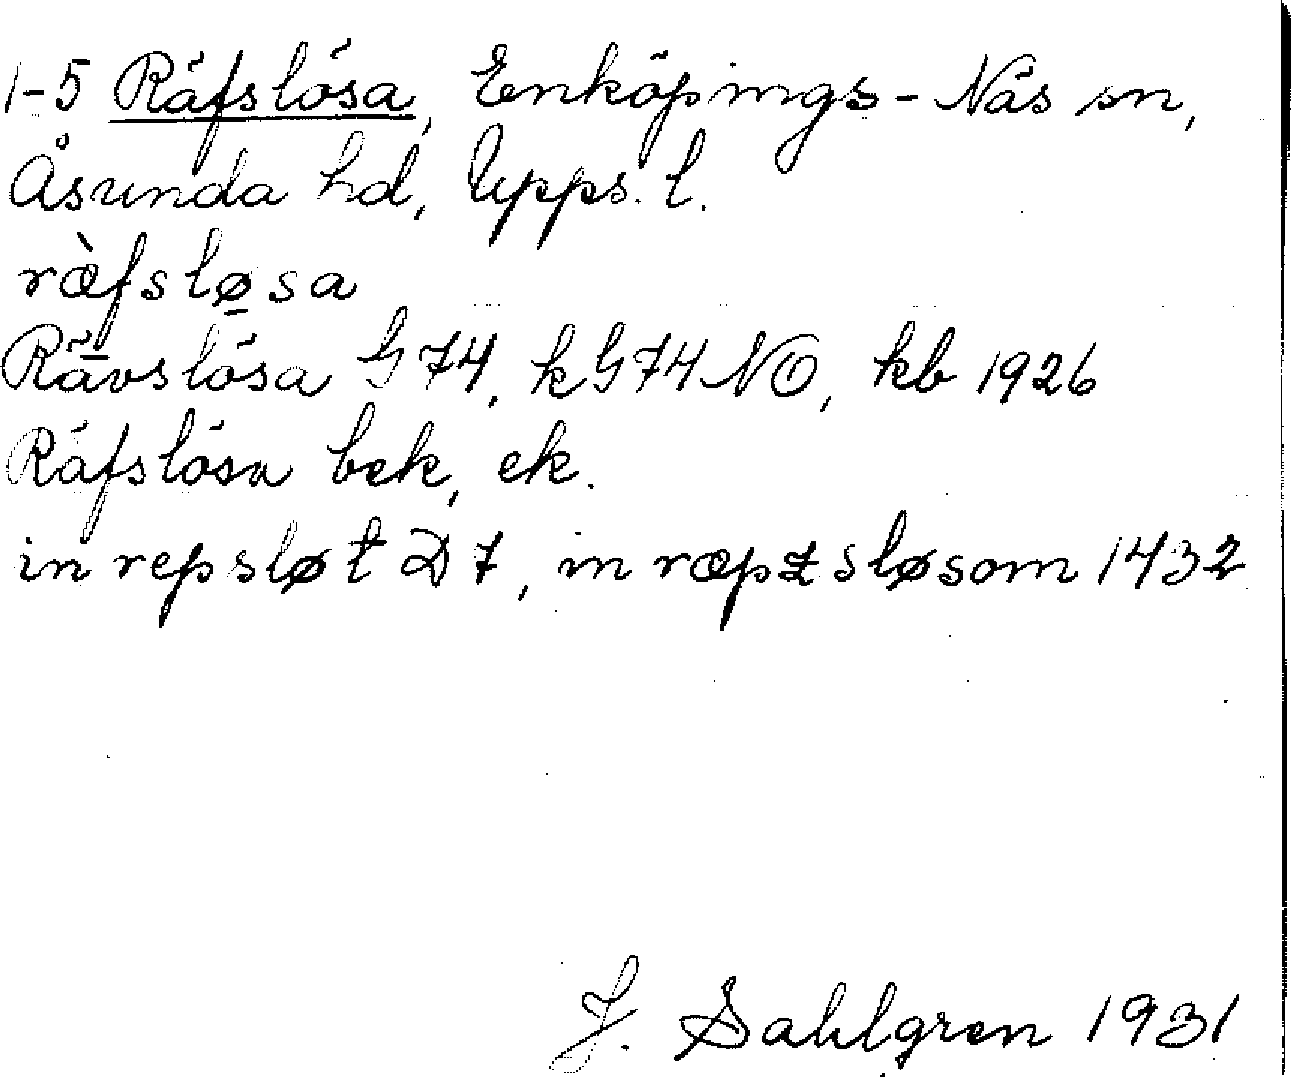 1-5 Räfslösa, Enköpings-Näs sn,
Åsunda hd, Upps. l.
ræ̀fsløsa
Rävslösa G74, kG74NO, kb 1926
Räfslösa bek, ek.
in repsløt D7, in ræpzsløsom 1432
J. Sahlgren 1931